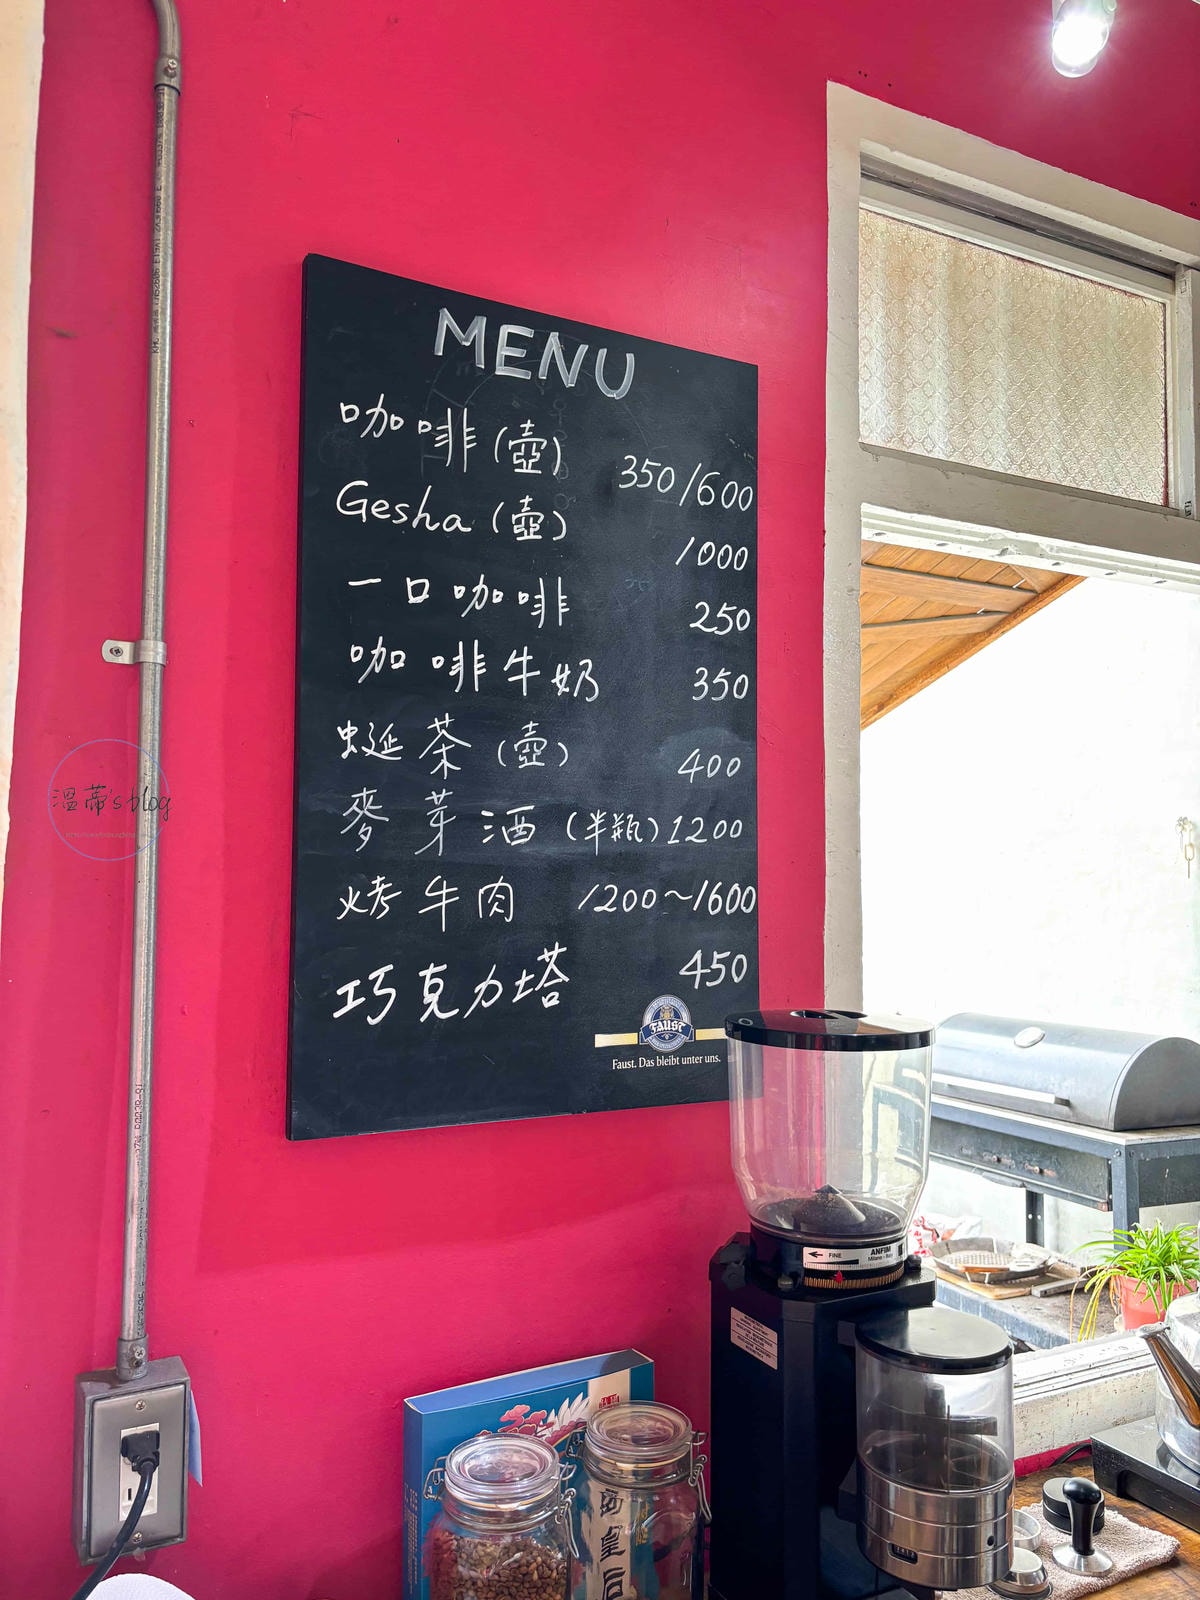 MENU
咖啡(壺) 350/600
Gesha(壺) 1000
一口咖啡 250
咖啡牛奶 350
蜒茶(壺) 400
麥芽酒(半瓶) 1200
烤牛肉 1200~1600
巧克力塔 450
FAUST
Faust. Das bleibt unter uns.
溫蒂's blog
FINE
ANFIM
皇后